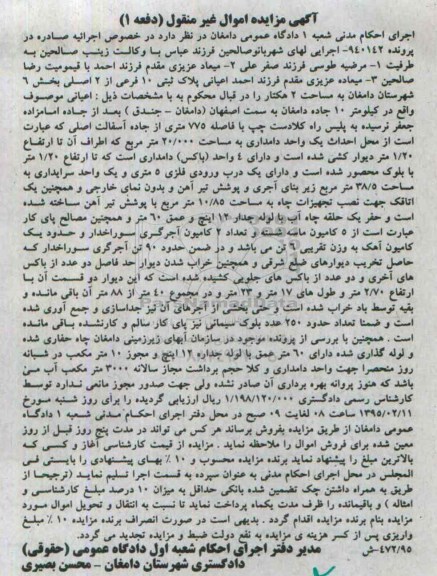 آگهی مزایده اموال غیر منقول (دفعه ۱)
اجرای احکام مدنی شعبه ۱ دادگاه عمومی دامغان در نظر دارد در خصوص اجرائیه صادره در
پرونده ۹۴۰۱۴۲- اجرایی لهای شهربانوصالحین فرزند عباس با وکالت زینب صالحین به
طرفیت ۱- مرضیه طوسی فرزند صفر علی ۲- میعاد عزیزی مقدم فرزند احمد با قیمومیت رضا
صالحین ۳- میعاده عزیزی مقدم فرزند احمد اعیانی پلاک ثبتی ۱۰ فرعی از ۲ اصلی بخش ۶
شهرستان دامغان به مساحت ۲ هکتار را در قبال محکوم به با مشخصات ذیل : اعیانی موصوف
واقع در کیلومتر ۱۰ جاده دامغان به سمت اصفهان (دامغان - جندق ) بعد از جاده امامزاده
جعفر نرسیده به پلیس راه کلادست چپ با فاصله ۷۷۵ متری از جاده آسفالت اصلی که عبارت
است از محل احداث یک واحد دامداری به مساحت ۲۰/۰۰۰ متر مربع که اطراف آن تا ارتفاع
۱/۲۰ متر دیوار کشی شده است و دارای ۴ واحد (باکس) دامداری است که تا ارتفاع ۱/۲۰ متر
با بلوک محصور شده است و دارای یک درب ورودی فلزی ۵ متری و یک واحد سرایداری به
مساحت ۳۸/۵ متر مربع زیر بنای آجری و پوشش تیر آهن و بدون نمای خارجی و همچنین یک
اتاقک جهت نصب تجهیزات چاه به مساحت ۱۰/۸۵ متر مربع با پوشش تیر آهن ساخته شده
است و حفر یک حلقه چاه آب با لوله جدار ۱۲ اینچ و عمق ۶۰ متر و همچنین مصالح پای کار
عبارت است از ۵ کامیون ماسه شسته و تعداد ۲ کامیون آجرگری سوراخدار و حدود یک
کامیون آهک به وزن تقریبی ۶ تن می باشد و در ضمن حدود ۹۰ تن آجرگری سوراخدار که
حاصل تخریب دیوارهای ضلع شرقی و همچنین خراب شدن دیوار حد فاصل دو عدد از باکس
های آخری و دو عدد از باکس های جلویی کشیده شده است که این دیوار دو قسمت آن با
ارتفاع ۲/۷۰ متر و طول های ۱۷ متر و ۲۳ متر و در مجموع ۴۰ متر از ۸۸ متر آن باقی مانده و
بقیه توسط باد خراب شده است و حتی بخشی از آجرهای آن نیز جداسازی و جمع آوری شده
است و ضمنا تعداد حدود ۲۵۰ عدد بلوک سیمانی نیز پای کار سالم و کارنشده باقی مانده
است . همچنین با بررسی از پرونده موجود در سازمان آبهای زیرزمینی دامغان چاه حفاری شده
و لوله گذاری شده دارای ۶۰ متر عمق با لوله جداره ۱۲ اینچ و مجوز ۱۰ متر مکعب در شبانه
روز منحصرا جهت واحد دامداری و کلا حجم برداشت مجاز سالانه ۳۰۰۰ متر مکعب آب می
باشد که هنوز پروانه بهره برداری آن صادر نشده ولی جهت صدور مجوز مانعی ندارد توسط
کارشناس رسمی دادگستری ۱/۱۹۸/۱۲۰/۰۰۰ ریال ارزیابی گردیده را برای روز شنبه مورخ
۱۳۹۵/۰۲/۱۱ ساعت ۰۸ لغایت ۰۹ صبح در محل دفتر اجرای احکام مدنی شعبه ۱ دادگاه
عمومی دامغان از طریق مزایده بفروش برساند هر کس می تواند در مدت پنج روز قبل از روز
معین شده برای فروش اموال را ملاحظه نماید . مزایده از قیمت کارشناسی آغاز و کسی که
بالاترین مبلغ را پیشنهاد نماید برنده مزایده محسوب و ۱۰ ٪ بهای پیشنهادی را بایستی فی
المجلس در محل اجرای احکام مدنی به عنوان سپرده به قسمت اجرا تسلیم نماید (ترجیحا از
طریق به همراه داشتن چک تضمین شده بانکی حداقل به میزان ۱۰ درصد مبلغ کارشناسی و
امثاله ) و باقیمانده را ظرف مدت یکماه پرداخت نماید تا نسبت به انتقال و تحویل اموال مورد
مزایده بنام برنده مزایده اقدام گردد . بدیهی است در صورت انصراف برنده مزایده ۱۰ ٪ مبلغ
واریزی پس از کسر هزینه ی مزایده به نفع دولت ضبط و مزایده تجدید می گردد.
۴۷۲/۹۵-ش مدیر دفتر اجرای احکام شعبه اول دادگاه عمومی (حقوقی)
دادگستری شهرستان دامغان - محسن بصیری